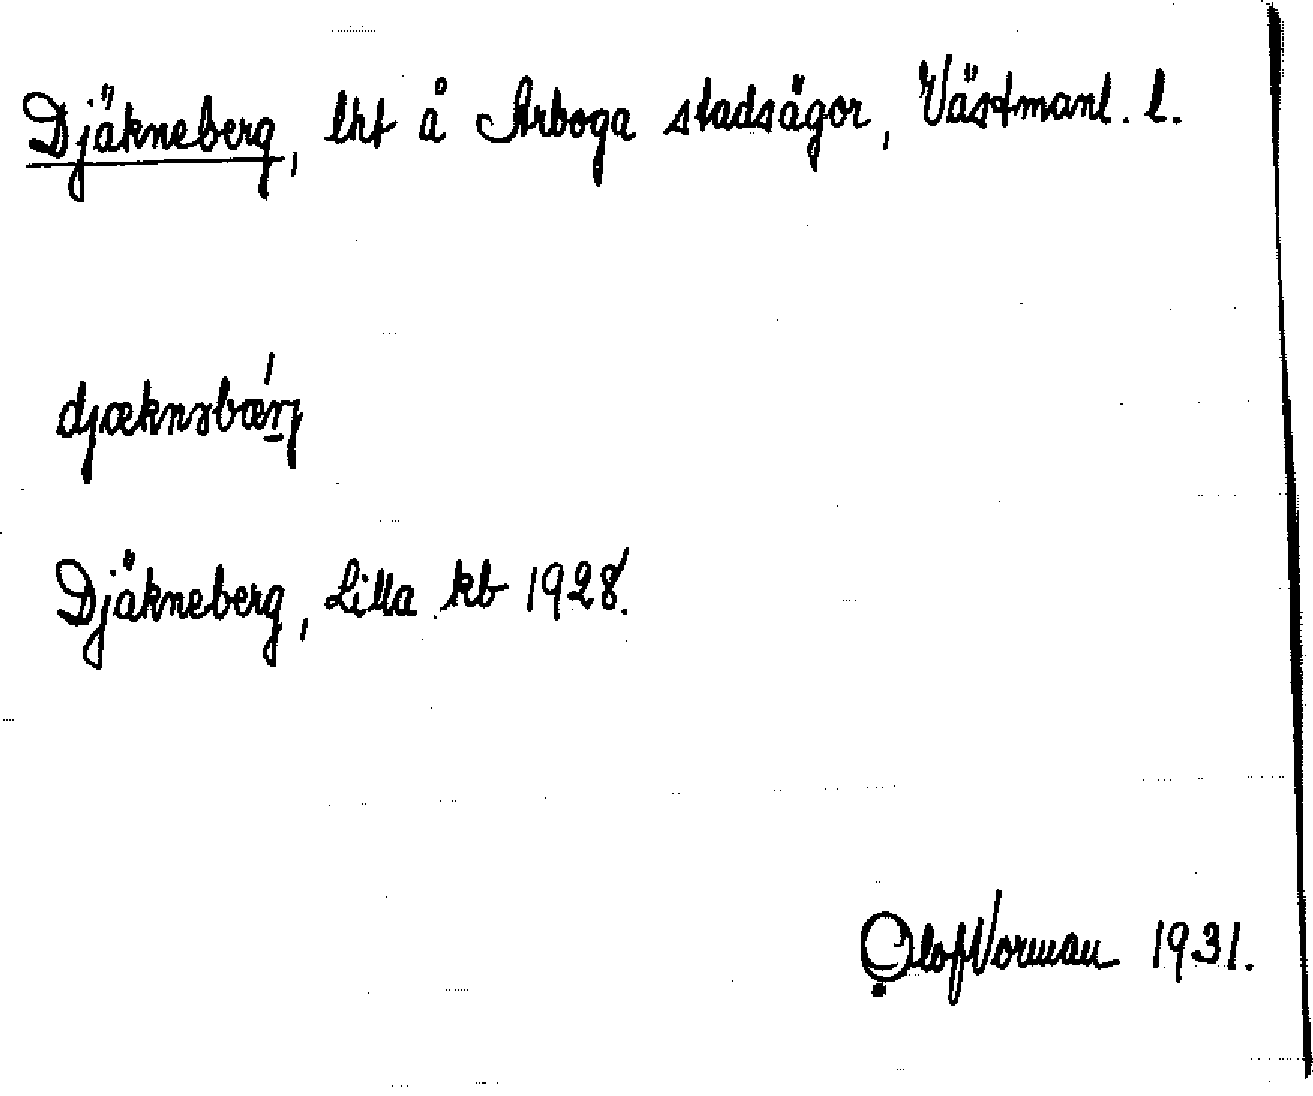 Djäkneberg, lht å Arboga stadsägor, Västmanl. l.
djæknəbǽrj
Djäkneberg, Lilla kb 1928.
Olof Vorman 1931.